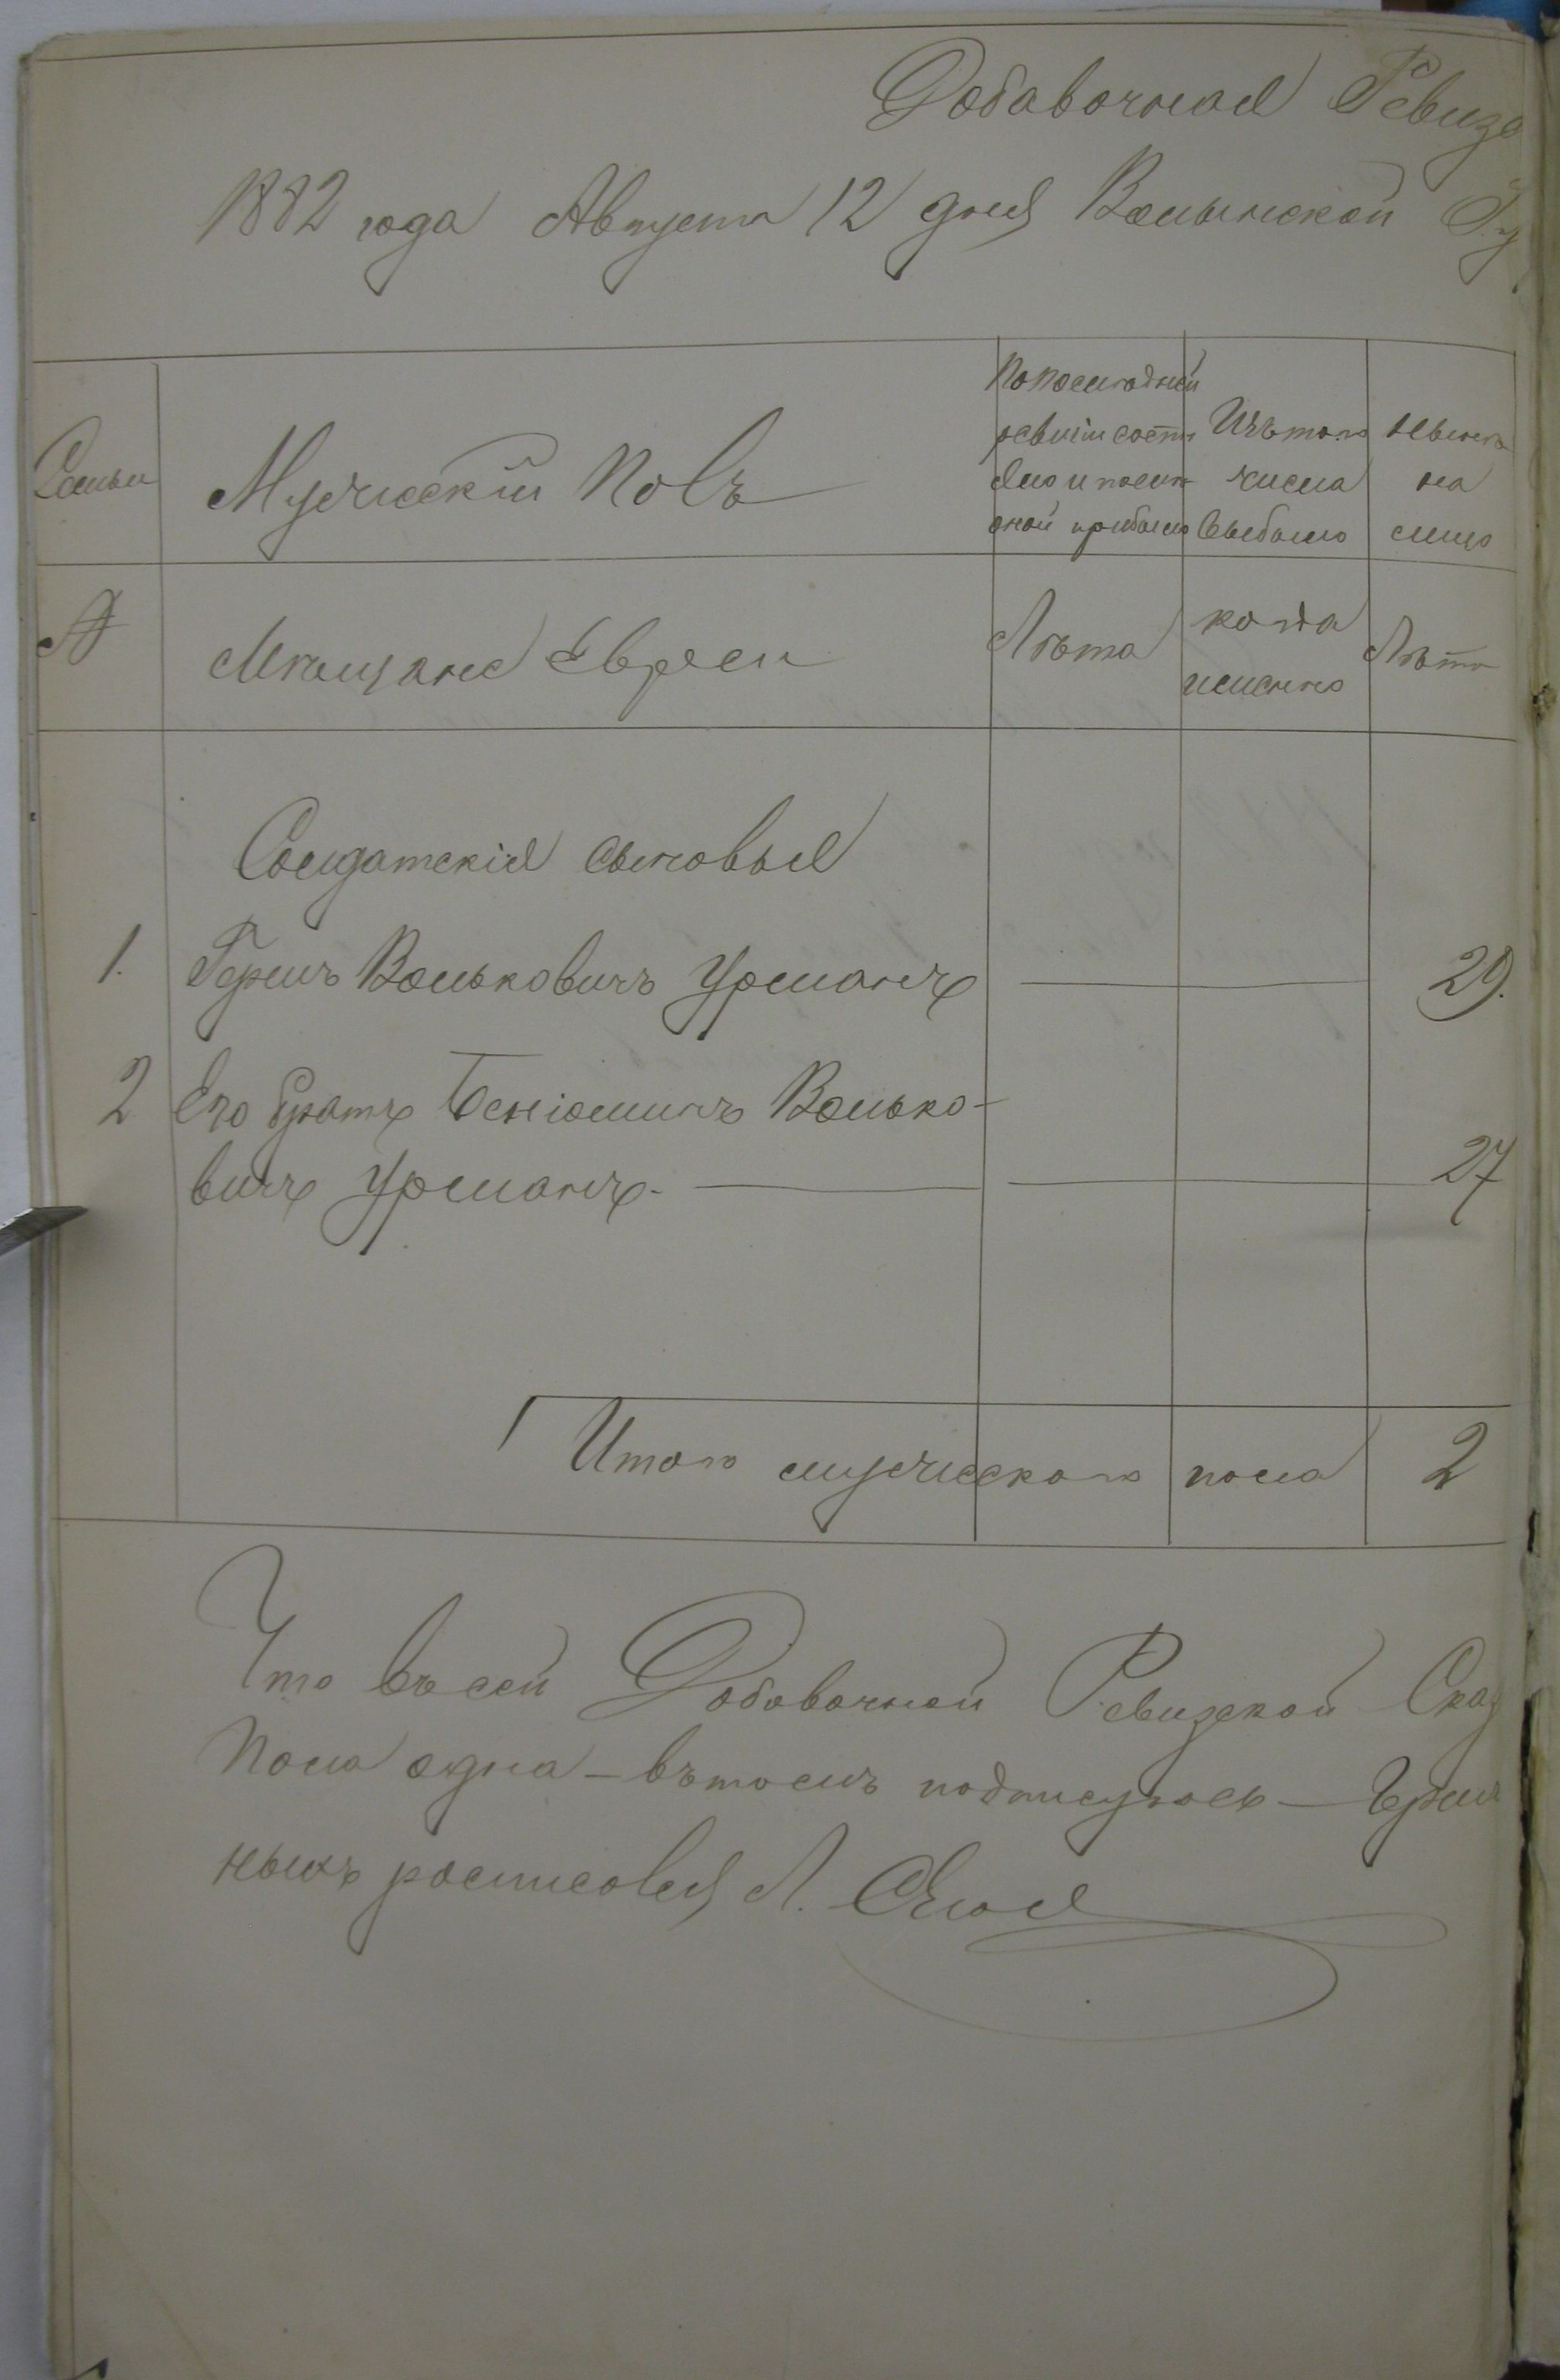 Добавочная Ревизс
1882 года Августа 12 дня Волынской Гу
Семьи
Мужескій Полъ
По последней
ревизіи состо
яло и после
оной прибыло
Изъ того
числа
выбыло
Ныне
на
лицо
№
Мещане Евреи
Лета
когда
именно
Лета
Солдатскія сыновья
1. Гершъ Вольковичъ Урманъ 29.
2 Его братъ Беніоминъ Волько-
вичъ Урманъ. 27
Итого мужеского пола 2
Что въ сей Добовочной Ревизской Сказ
пола одна - въ томъ подписуюсь -
ныхъ росписовся Л.